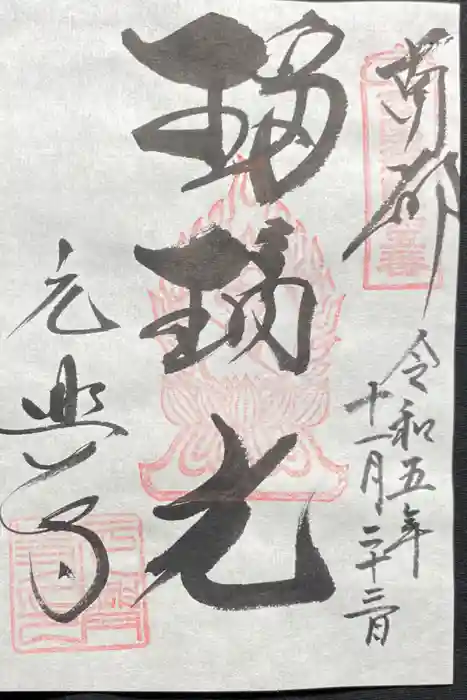 南都
令和五年
十一月二十三日
瑠璃光
元興寺